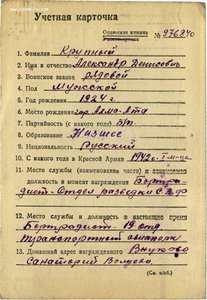 Учетная карточка
Орденская книжка
Удостоверение
№ 976240
1. Фамилия Крупный
2. Имя и отчество Александр Денисович
3. Воинское звание рядовой
4. Пол Мужской
5. Год рождения 1924 г.
6. Место рождения гор. Алма-Ата
7. Партийность (с какого года) б/п
8. Образование Низшее
9. Национальность Русский
10. С какого года в Красной Армии 1942 г.
11. Место службы (наименование части) и занимаемая
должность в момент награждения Бортра-
дист - Отдел разведки
12. Место службы и должность в настоящее время
Бортрадист - 19 отд.
транспортный авиаполк
13. Домашний адрес награжденного Внуково
Санаторий
(См. н/об.)